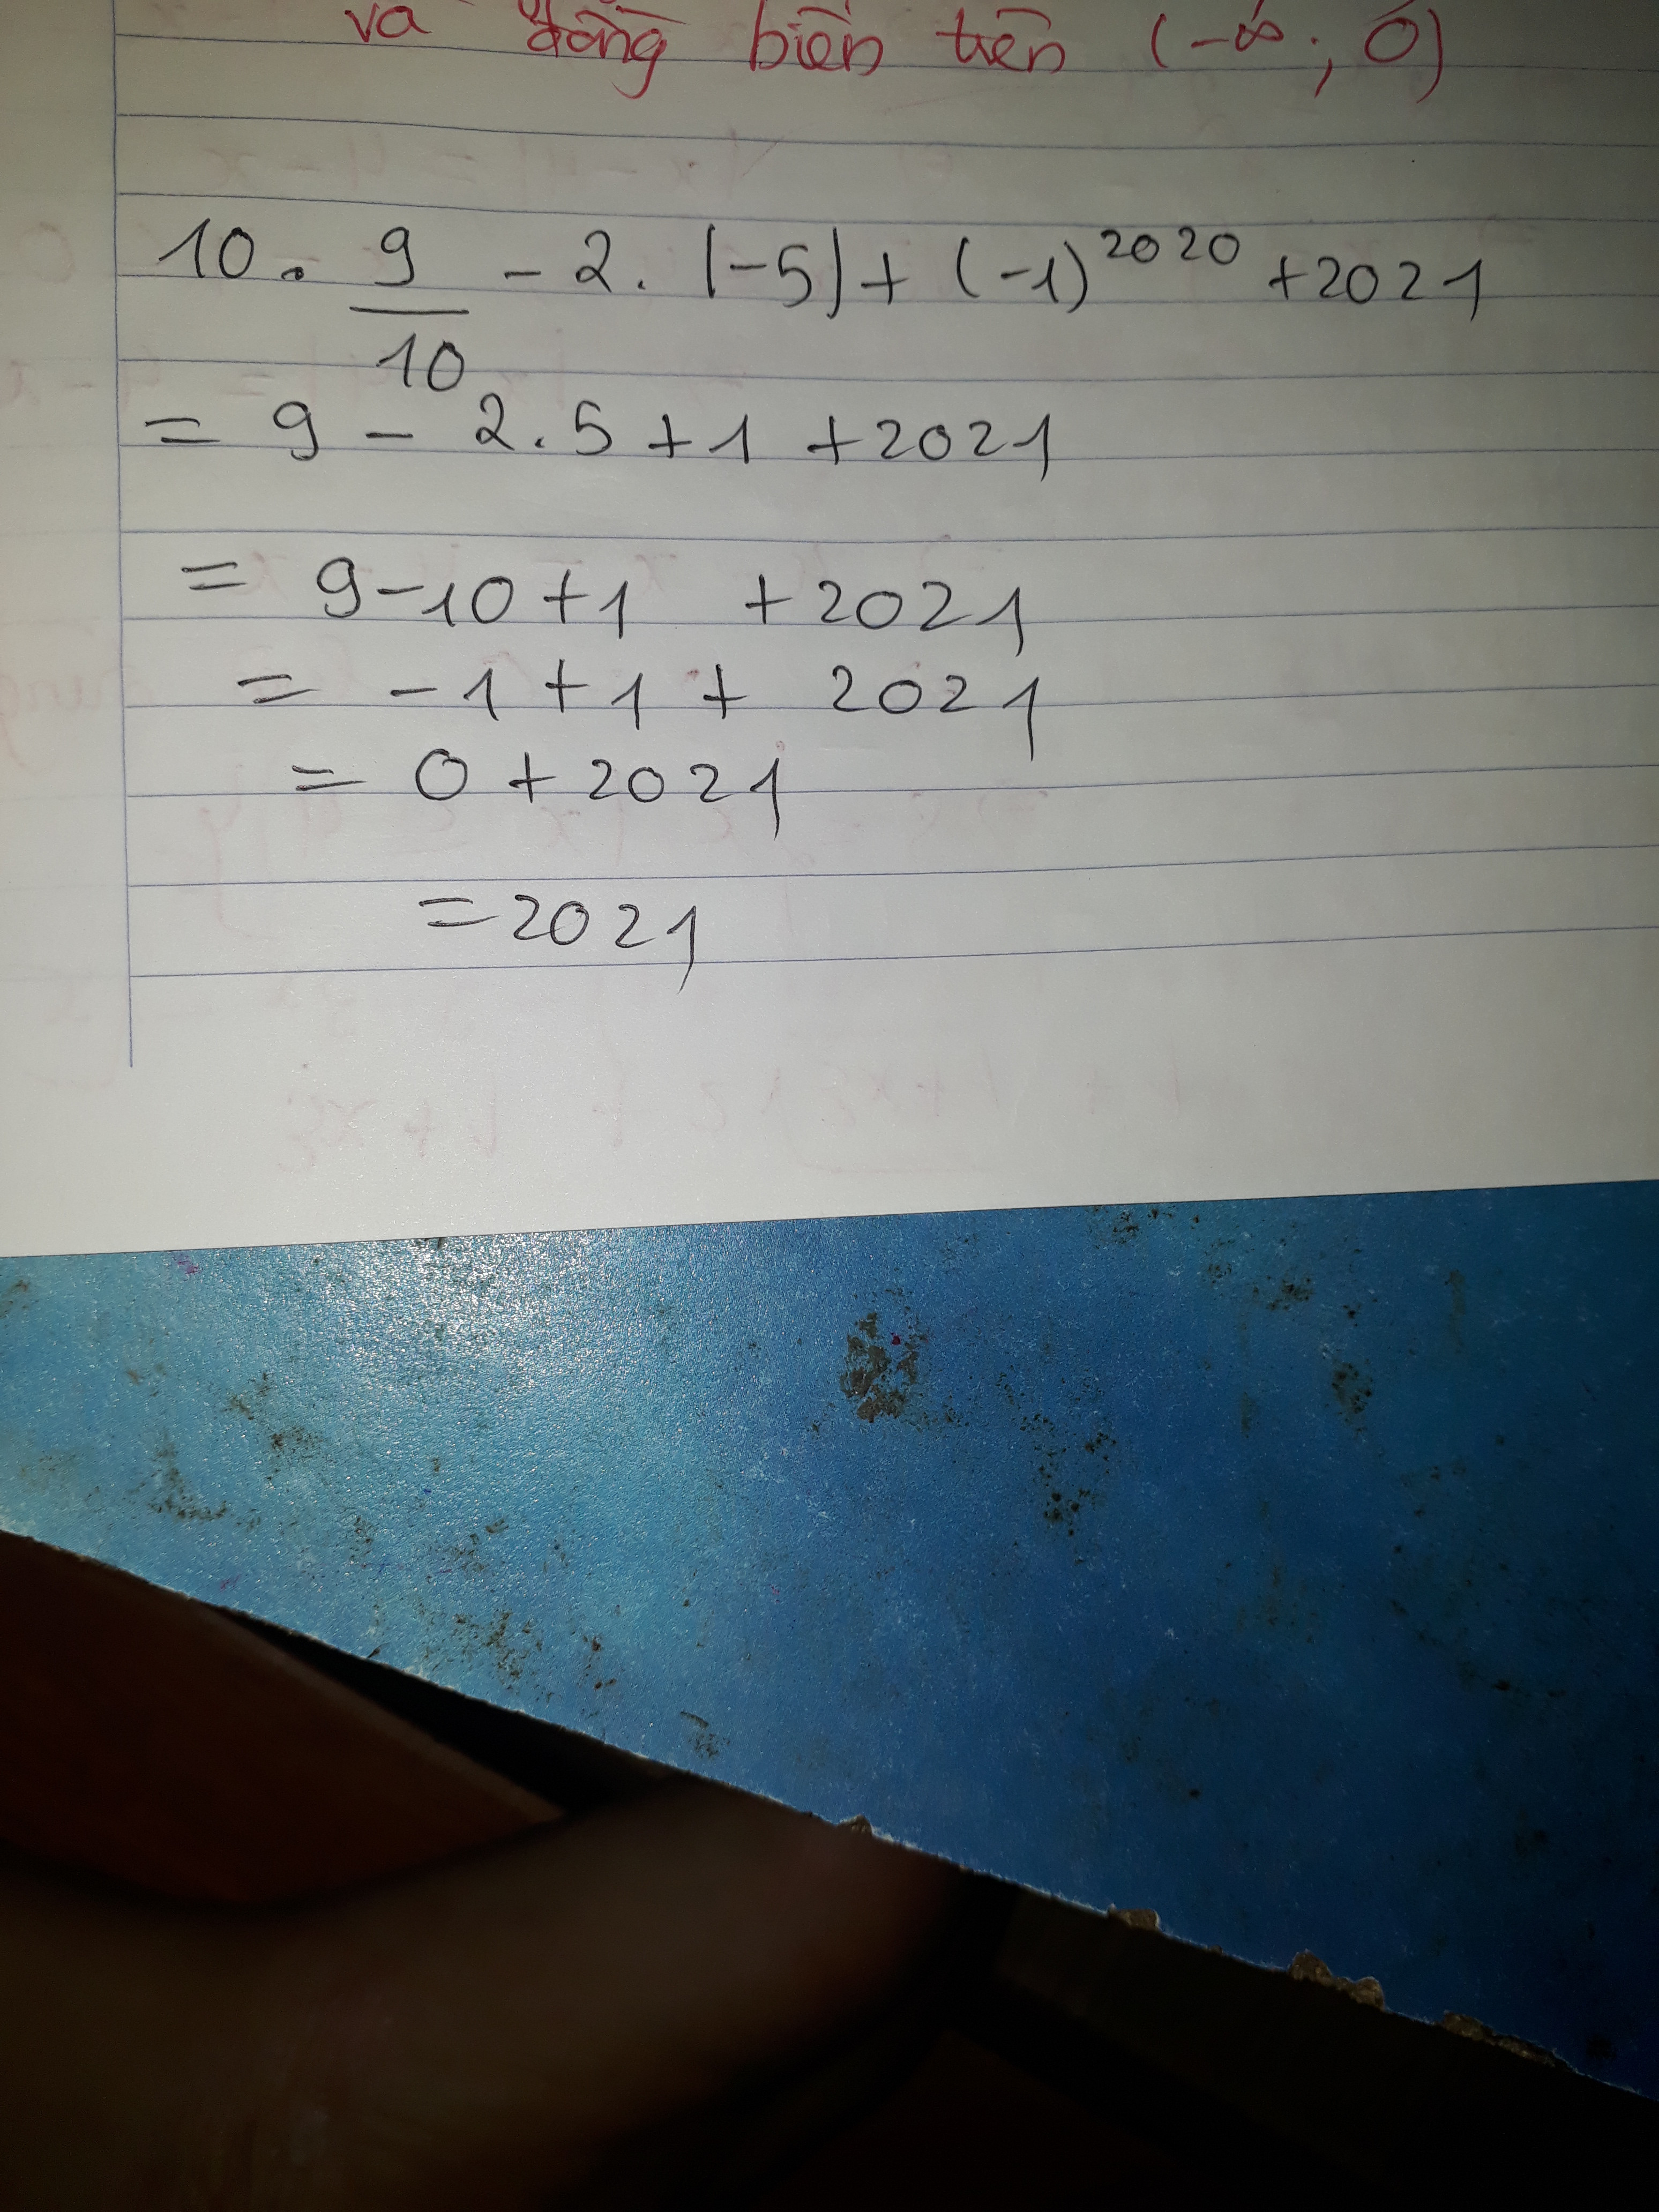 và đồng biến trên (-∞; 0)
10 . 9/10 - 2. |-5| + (-1)^2020 + 2021
= 9 - 2.5 + 1 + 2021
= 9 - 10 + 1 + 2021
= -1 + 1 + 2021
= 0 + 2021
= 2021